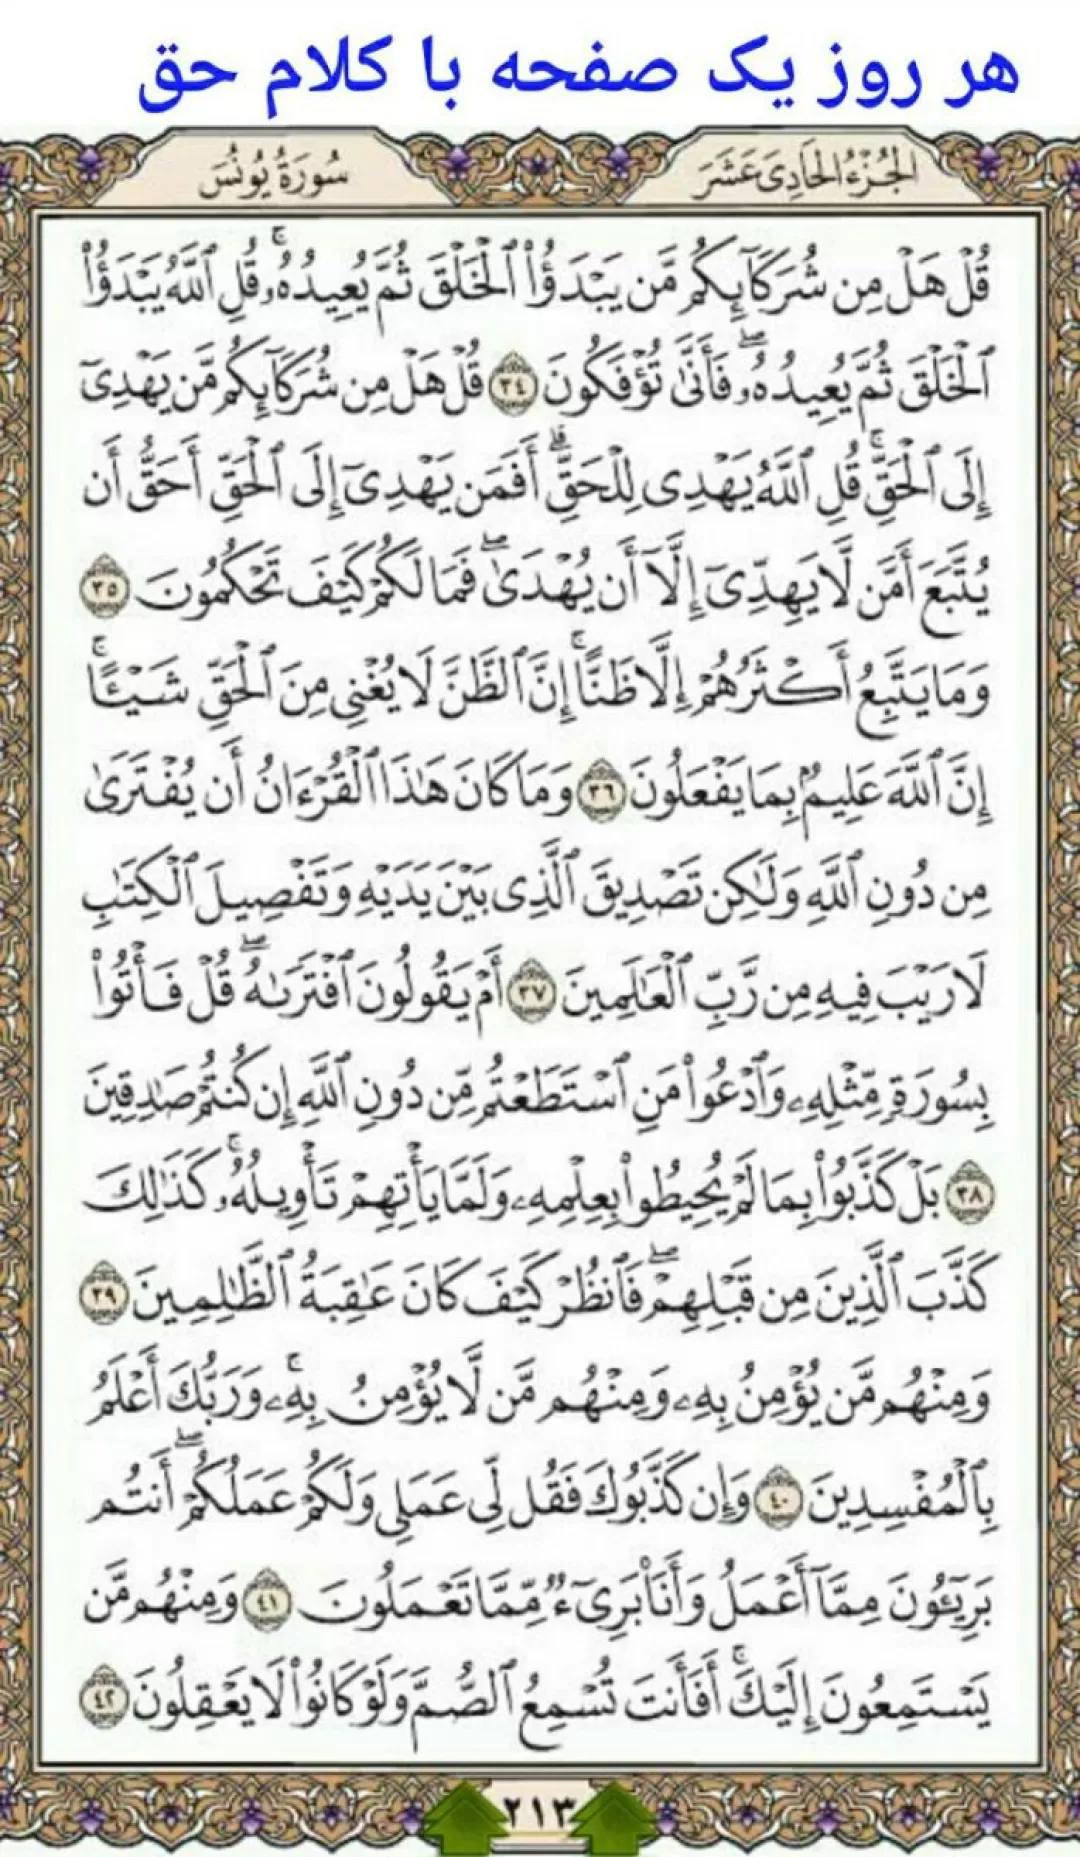 هر روز یک صفحه با کلام حق
الجُزءُ الحَادِى عَشَرَ
سُورَةُ يُونُسَ
قُلْ هَلْ مِن شُرَكَآئِكُم مَّن يَبْدَؤُاْ ٱلْخَلْقَ ثُمَّ يُعِيدُهُۥۚ قُلِ ٱللَّهُ يَبْدَؤُاْ
ٱلْخَلْقَ ثُمَّ يُعِيدُهُۥۖ فَأَنَّىٰ تُؤْفَكُونَ ٣٤ قُلْ هَلْ مِن شُرَكَآئِكُم مَّن يَهْدِىٓ
إِلَى ٱلْحَقِّۚ قُلِ ٱللَّهُ يَهْدِى لِلْحَقِّۗ أَفَمَن يَهْدِىٓ إِلَى ٱلْحَقِّ أَحَقُّ أَن
يُتَّبَعَ أَمَّن لَّا يَهِدِّىٓ إِلَّآ أَن يُهْدَىٰۖ فَمَا لَكُمْ كَيْفَ تَحْكُمُونَ ٣٥
وَمَا يَتَّبِعُ أَكْثَرُهُمْ إِلَّا ظَنًّاۚ إِنَّ ٱلظَّنَّ لَا يُغْنِى مِنَ ٱلْحَقِّ شَيْـًٔاۚ
إِنَّ ٱللَّهَ عَلِيمٌۢ بِمَا يَفْعَلُونَ ٣٦ وَمَا كَانَ هَٰذَا ٱلْقُرْءَانُ أَن يُفْتَرَىٰ
مِن دُونِ ٱللَّهِ وَلَٰكِن تَصْدِيقَ ٱلَّذِى بَيْنَ يَدَيْهِ وَتَفْصِيلَ ٱلْكِتَٰبِ
لَا رَيْبَ فِيهِ مِن رَّبِّ ٱلْعَٰلَمِينَ ٣٧ أَمْ يَقُولُونَ ٱفْتَرَىٰهُۖ قُلْ فَأْتُواْ
بِسُورَةٍ مِّثْلِهِۦ وَٱدْعُواْ مَنِ ٱسْتَطَعْتُم مِّن دُونِ ٱللَّهِ إِن كُنتُمْ صَٰدِقِينَ
٣٨ بَلْ كَذَّبُواْ بِمَا لَمْ يُحِيطُواْ بِعِلْمِهِۦ وَلَمَّا يَأْتِهِمْ تَأْوِيلُهُۥۚ كَذَٰلِكَ
كَذَّبَ ٱلَّذِينَ مِن قَبْلِهِمْۖ فَٱنظُرْ كَيْفَ كَانَ عَٰقِبَةُ ٱلظَّٰلِمِينَ ٣٩
وَمِنْهُم مَّن يُؤْمِنُ بِهِۦ وَمِنْهُم مَّن لَّا يُؤْمِنُ بِهِۦۚ وَرَبُّكَ أَعْلَمُ
بِٱلْمُفْسِدِينَ ٤٠ وَإِن كَذَّبُوكَ فَقُل لِّى عَمَلِى وَلَكُمْ عَمَلُكُمْۖ أَنتُم
بَرِيٓـُٔونَ مِمَّآ أَعْمَلُ وَأَنَا۠ بَرِىٓءٌ مِّمَّا تَعْمَلُونَ ٤١ وَمِنْهُم مَّن
يَسْتَمِعُونَ إِلَيْكَۚ أَفَأَنتَ تُسْمِعُ ٱلصُّمَّ وَلَوْ كَانُواْ لَا يَعْقِلُونَ ٤٢
٢١٣